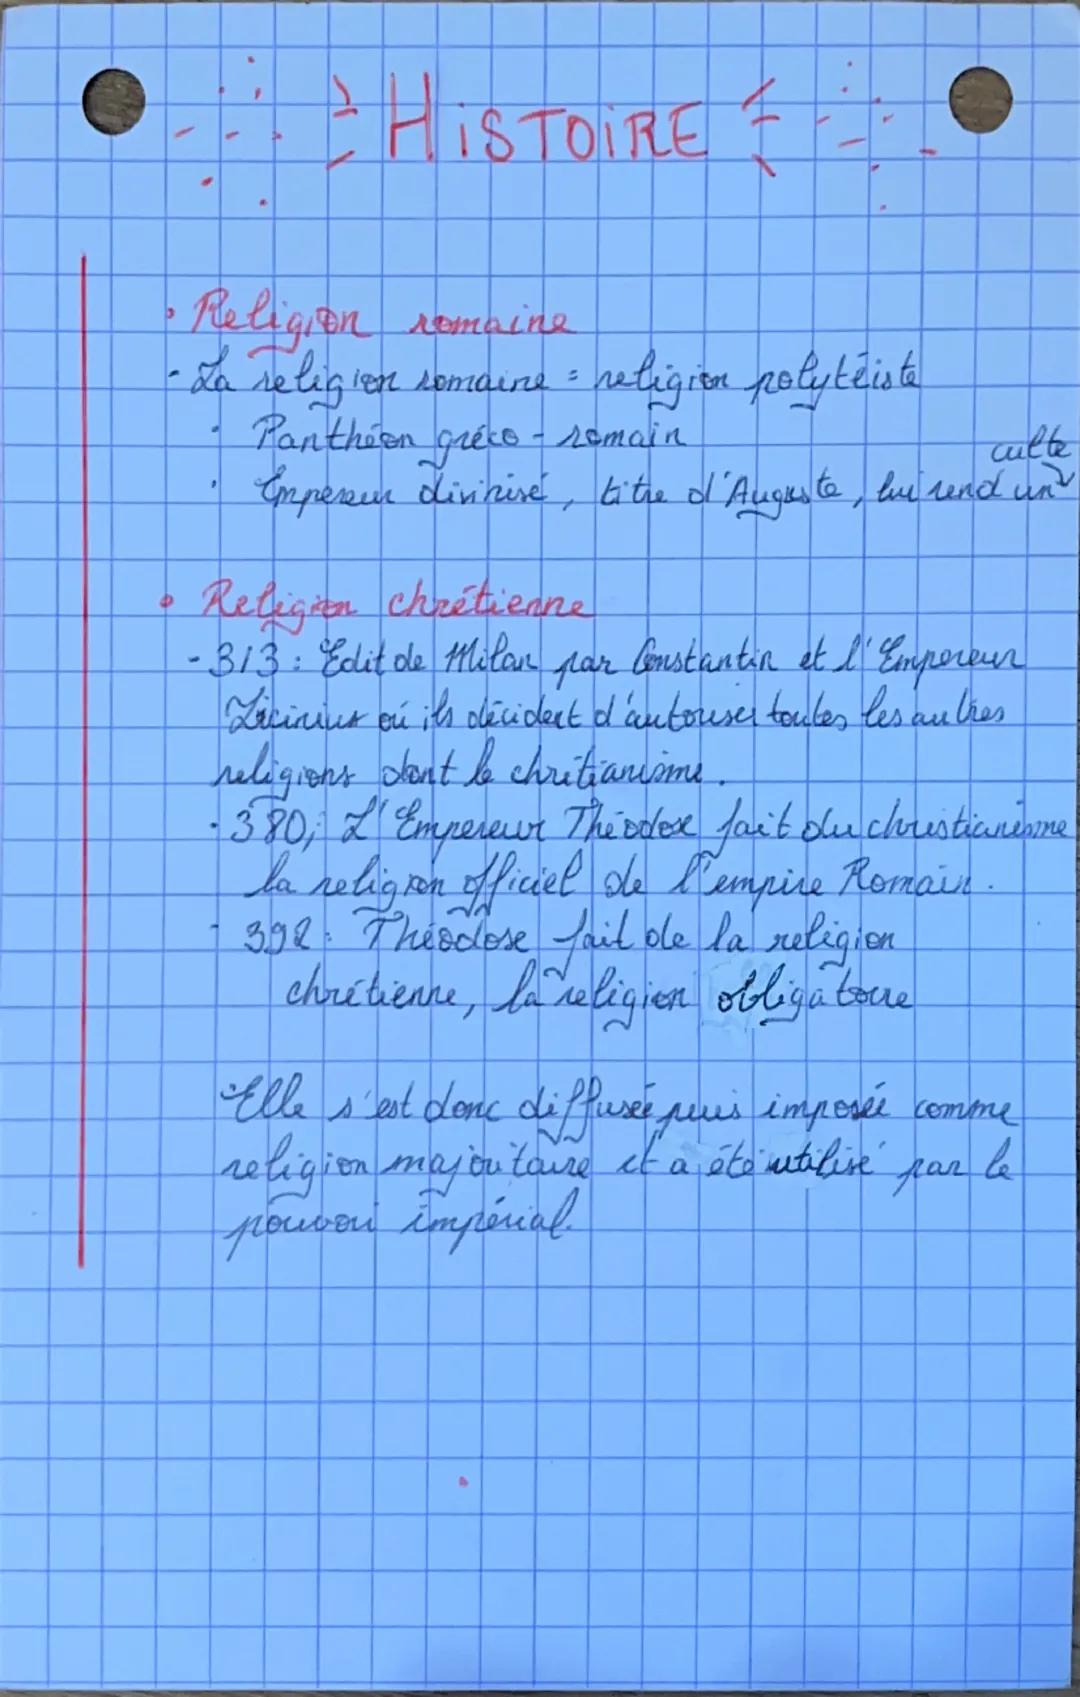 HiSTOiRE
• Religion romaine
- La religion romaine = religion polytéiste
• Panthéon gréco-romain
culte
• Empereur divinisé, titre d'Auguste, lui rend un
• Religion chrétienne
- 313 : Edit de Milan par Constantin et l'Empereur
Licinius où ils décident d'autoriser toutes les autres
religions dont le christianisme.
- 380, L'Empereur Théodose fait du christianisme
la religion officiel de l'empire Romain.
- 392 : Théodose fait de la religion
chrétienne, la religion obligatoire
Elle s'est donc diffusée puis imposée comme
religion majoritaire et a été utilisé par le
pouvoir impérial.